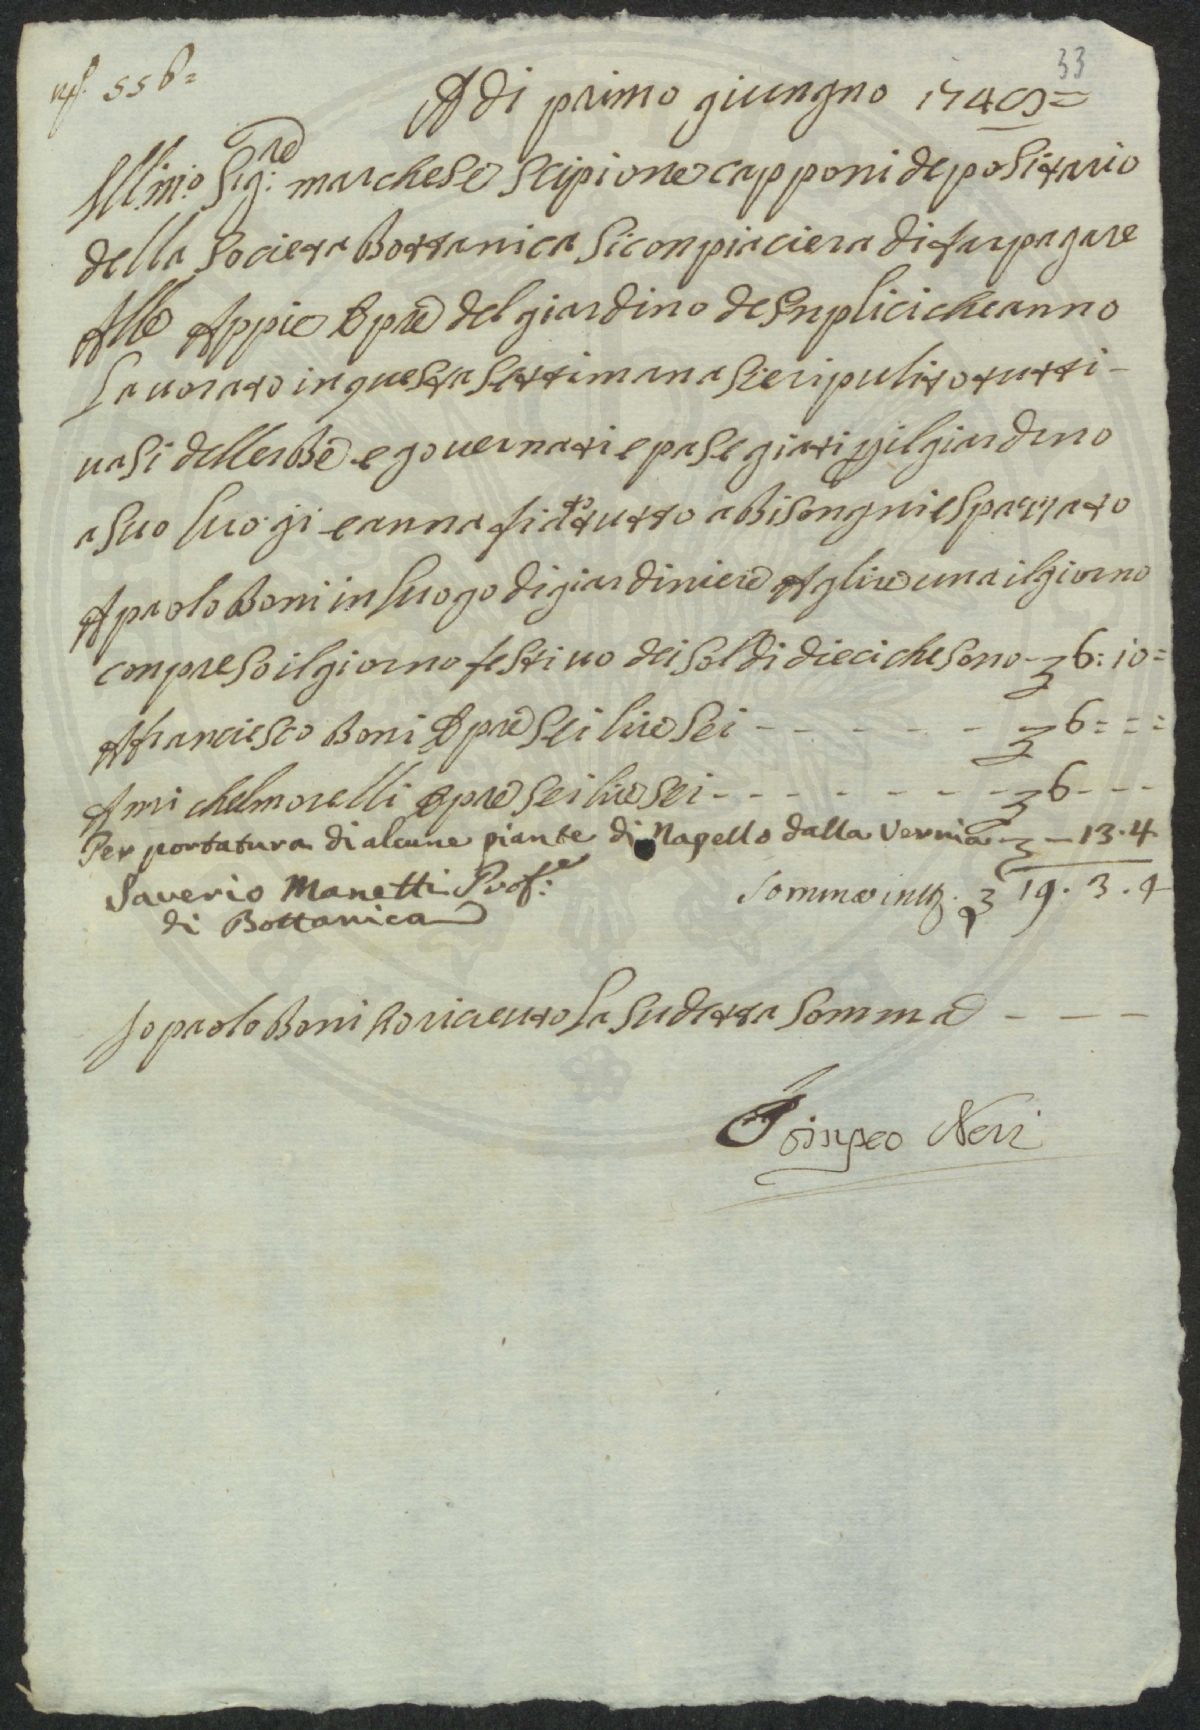 33
Adi primo giungno 1749=
Ill.mo Sig:re marchese Scipione capponi depositario
della Societa Bottanica Si conpiaciera di far pagare
Alle Appie Opre del giardino de Senplici che anno
Lavorato in questa settimana Sie ripulito tutti -
vasi dellerbe e governati e pasegiati p il giardino
a suo luogi e anna fiato tutto a Bisongni e spazzato
A paolo Boni in luogo di giardiniere A lire una il giorno
conpreso il giorno festivo dei soldi dieci che sono - 6:10=
A franciesco Boni Opre sei lire sei - - - - - - 6=-=
A michel morelli Opre sei lire sei - - - - - - - - 6 - - -
Per portatura di alcune piante di Napello dalla Vernia - 13.4
Saverio Manetti Prof:e Somma in tt. 19.3.4
di Bottanica
Io paolo Boni ho ricieuto La Sudetta Somma - - -
Pompeo Neri